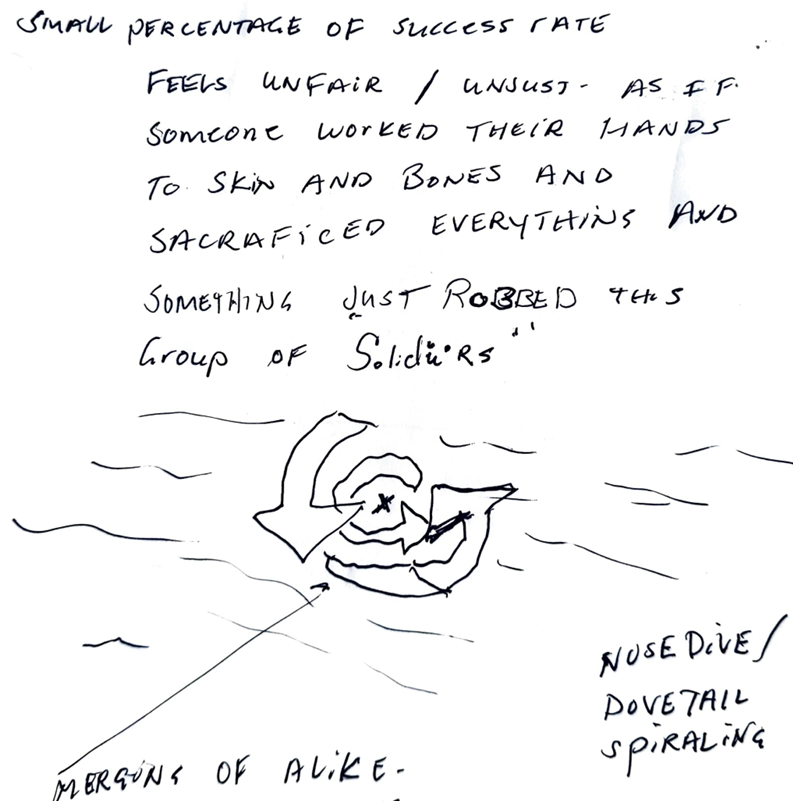 SMALL PERCENTAGE OF SUCCESS RATE
FEELS UNFAIR / UNJUST- AS IF
SOMEONE WORKED THEIR HANDS
TO SKIN AND BONES AND
SACRAFICED EVERYTHING AND
SOMETHING JUST ROBBED THIS
GROUP OF
X
NOSEDIVE/
DOVETAIL
SPIRALING
MERGING OF ALIKE-